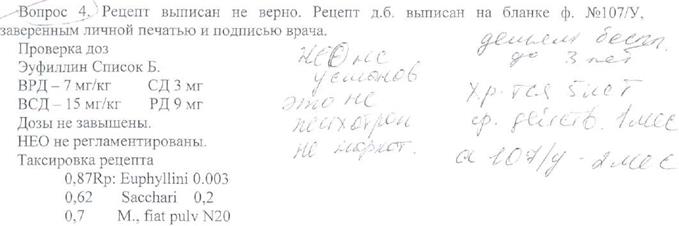 Вопрос 4. Рецепт выписан не верно. Рецепт д.б. выписан на бланке ф. №107/У,
заверенным личной печатью и подписью врача.
Проверка доз
Эуфиллин Список Б.
ВРД – 7 мг/кг СД 3 мг
ВСД – 15 мг/кг РД 9 мг
Дозы не завышены.
НЕО не регламентированы.
Таксировка рецепта
0,87Rp: Euphyllini 0.003
0,62 Sacchari 0,2
0,7 M., fiat pulv N20
НЕО не
это не
психотроп
не наркот.
до 3 лет
хр-тся 5 лет
1 мес
а 107/у - 2 мес